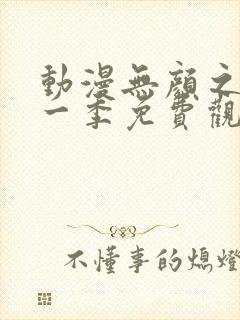 動漫無顏之
一季免費觀
不懂事的熄燈